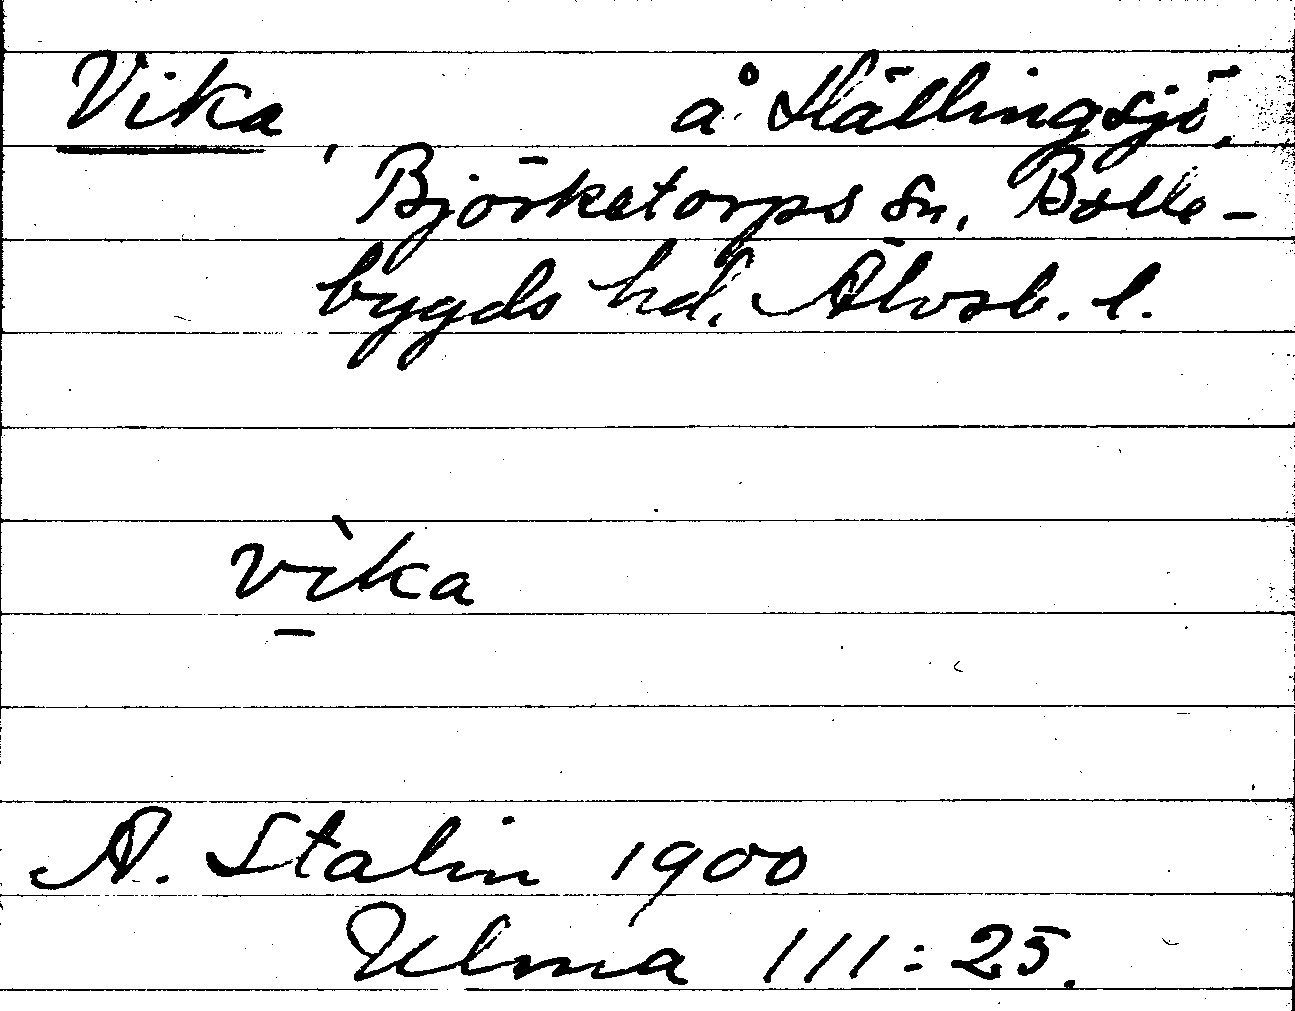 Vika å Hällingsjö,
Björketorps sn, Bolle-
bygds hd. Älvsb. l.
vìka
A. Stalin 1900
Ulma 111:25.